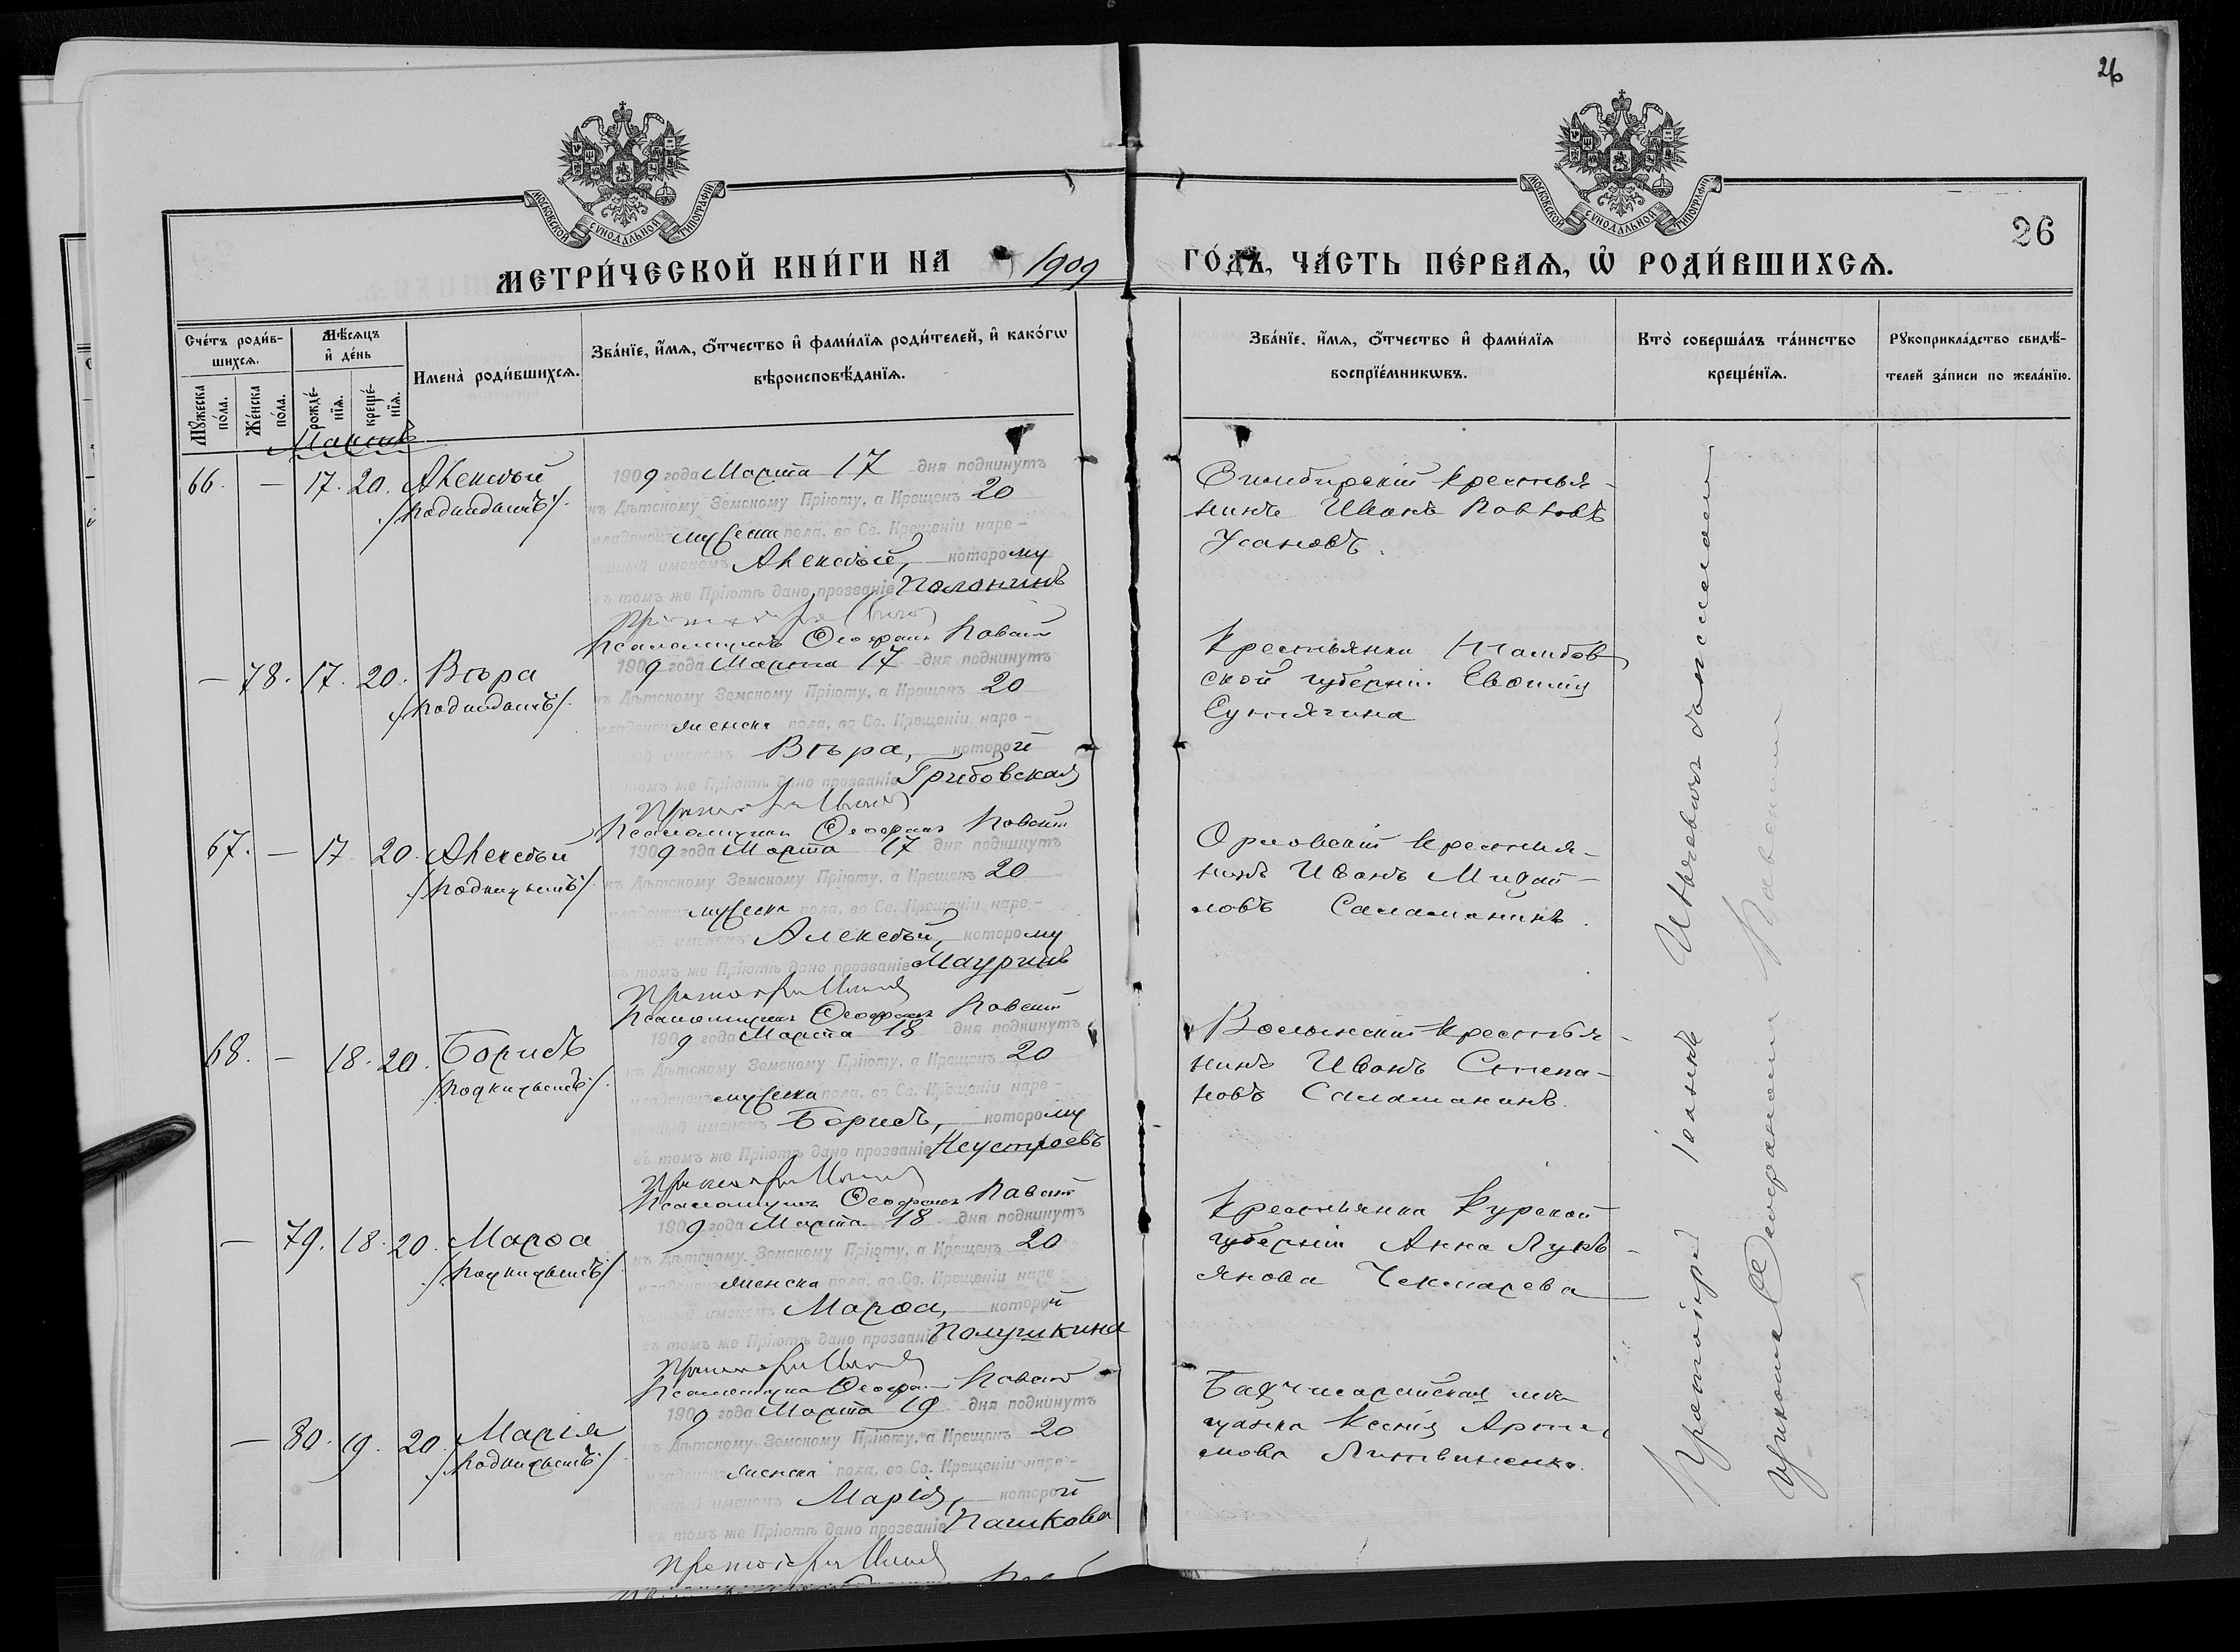 26
26
МОСКОВСКОЙ СУНОДАЛЬНОЙ ТИПОГРАФІИ
МОСКОВСКОЙ СУНОДАЛЬНОЙ ТИПОГРАФІИ
МЕТРИ́ЧЕСКОЙ КНИ́ГИ НА 1909 ГО́ДЪ, ЧА́СТЬ ПЕ́РВАѦ, Ѡ҆ РОДИ́ВШИХСѦ.
Сче́тъ роди́в-
шихсѧ.
Мꙋ́жеска по́ла.
Же́нска по́ла.
Мѣ́сѧцъ
и҆ де́нь
рожде́-
нїѧ.
креще́-
нїѧ.
Имена̀ роди́вшихсѧ.
Зва́нїе, и҆́мѧ, ѻ҆́тчество и҆ фами́лїѧ роди́телей, и҆ како́гѡ
вѣроисповѣ́данїѧ.
Зва́нїе, и҆́мѧ, ѻ҆́тчество и҆ фами́лїѧ
воспрїе́мникѡвъ.
Кто̀ соверша́лъ та́инство
креще́нїѧ.
Рꙋкоприкла́дство свидѣ́-
телей за́писи по жела́нїю.
Мартъ
66. — 17. 20. Алексѣй
/Подкидышъ/.
1909 года Марта 17 дня подкинутъ
къ Дѣтскому Земскому Пріюту, а Крещенъ 20
младенецъ мужеска пола, во Св. Крещеніи наре-
ченный именемъ Алексѣй, которому
въ томъ же Пріютѣ дано прозваніе Полонинъ
Псаломщикъ Ѳеофанъ
Симбирскій крестья-
нинъ Иванъ Павловъ
Усановъ.
— 78. 17. 20. Вѣра
/Подкидышъ/.
1909 года Марта 17 дня подкинутъ
къ Дѣтскому Земскому Пріюту, а Крещенъ 20
младенецъ женска пола, во Св. Крещеніи наре-
ченный именемъ Вѣра, которой
въ томъ же Пріютѣ дано прозваніе Грибовская
Псаломщикъ Ѳеофанъ
Крестьянка Тамбов
ской губерніи
67. — 17 20. Алексѣй
/Подкидышъ/
1909 года Марта 17 дня подкинутъ
къ Дѣтскому Земскому Пріюту, а Крещенъ 20
младенецъ мужеска пола, во Св. Крещеніи наре-
ченный именемъ Алексѣй, которому
въ томъ же Пріютѣ дано прозваніе Мауринъ
Псаломщикъ Ѳеофанъ
Орловскій крестья-
нинъ Иванъ Михай-
ловъ Саламанинъ.
68. — 18. 20. Борисъ
/Подкидышъ/.
1909 года Марта 18 дня подкинутъ
къ Дѣтскому Земскому Пріюту, а Крещенъ 20
младенецъ мужеска пола, во Св. Крещеніи наре-
ченный именемъ Борисъ, которому
въ томъ же Пріютѣ дано прозваніе Неустроевъ
Псаломщикъ Ѳеофанъ
Волынскій крестья-
нинъ Иванъ Степа-
новъ Саламанинъ.
— 79. 18. 20. Марѳа
/Подкидышъ/
1909 года Марта 18 дня подкинутъ
къ Дѣтскому Земскому Пріюту, а Крещенъ 20
младенецъ женска пола, во Св. Крещеніи наре-
ченный именемъ Марѳа, которой
въ томъ же Пріютѣ дано прозваніе Полушкина
Псаломщикъ Ѳеофанъ
Крестьянка Курской
губерніи Анна Лукь-
янова Чекмарева
— 80. 19. 20. Марія
/Подкидышъ/
1909 года Марта 19 дня подкинутъ
къ Дѣтскому Земскому Пріюту, а Крещенъ 20
младенецъ женска пола, во Св. Крещеніи наре-
ченный именемъ Марія, которой
въ томъ же Пріютѣ дано прозваніе Пашкова
Бахчисарайская мѣ
щанка Ксенія Арте
мова Литвиненко.
Протоіерей Іоаннъ съ псаломщи-
комъ Ѳеофаномъ